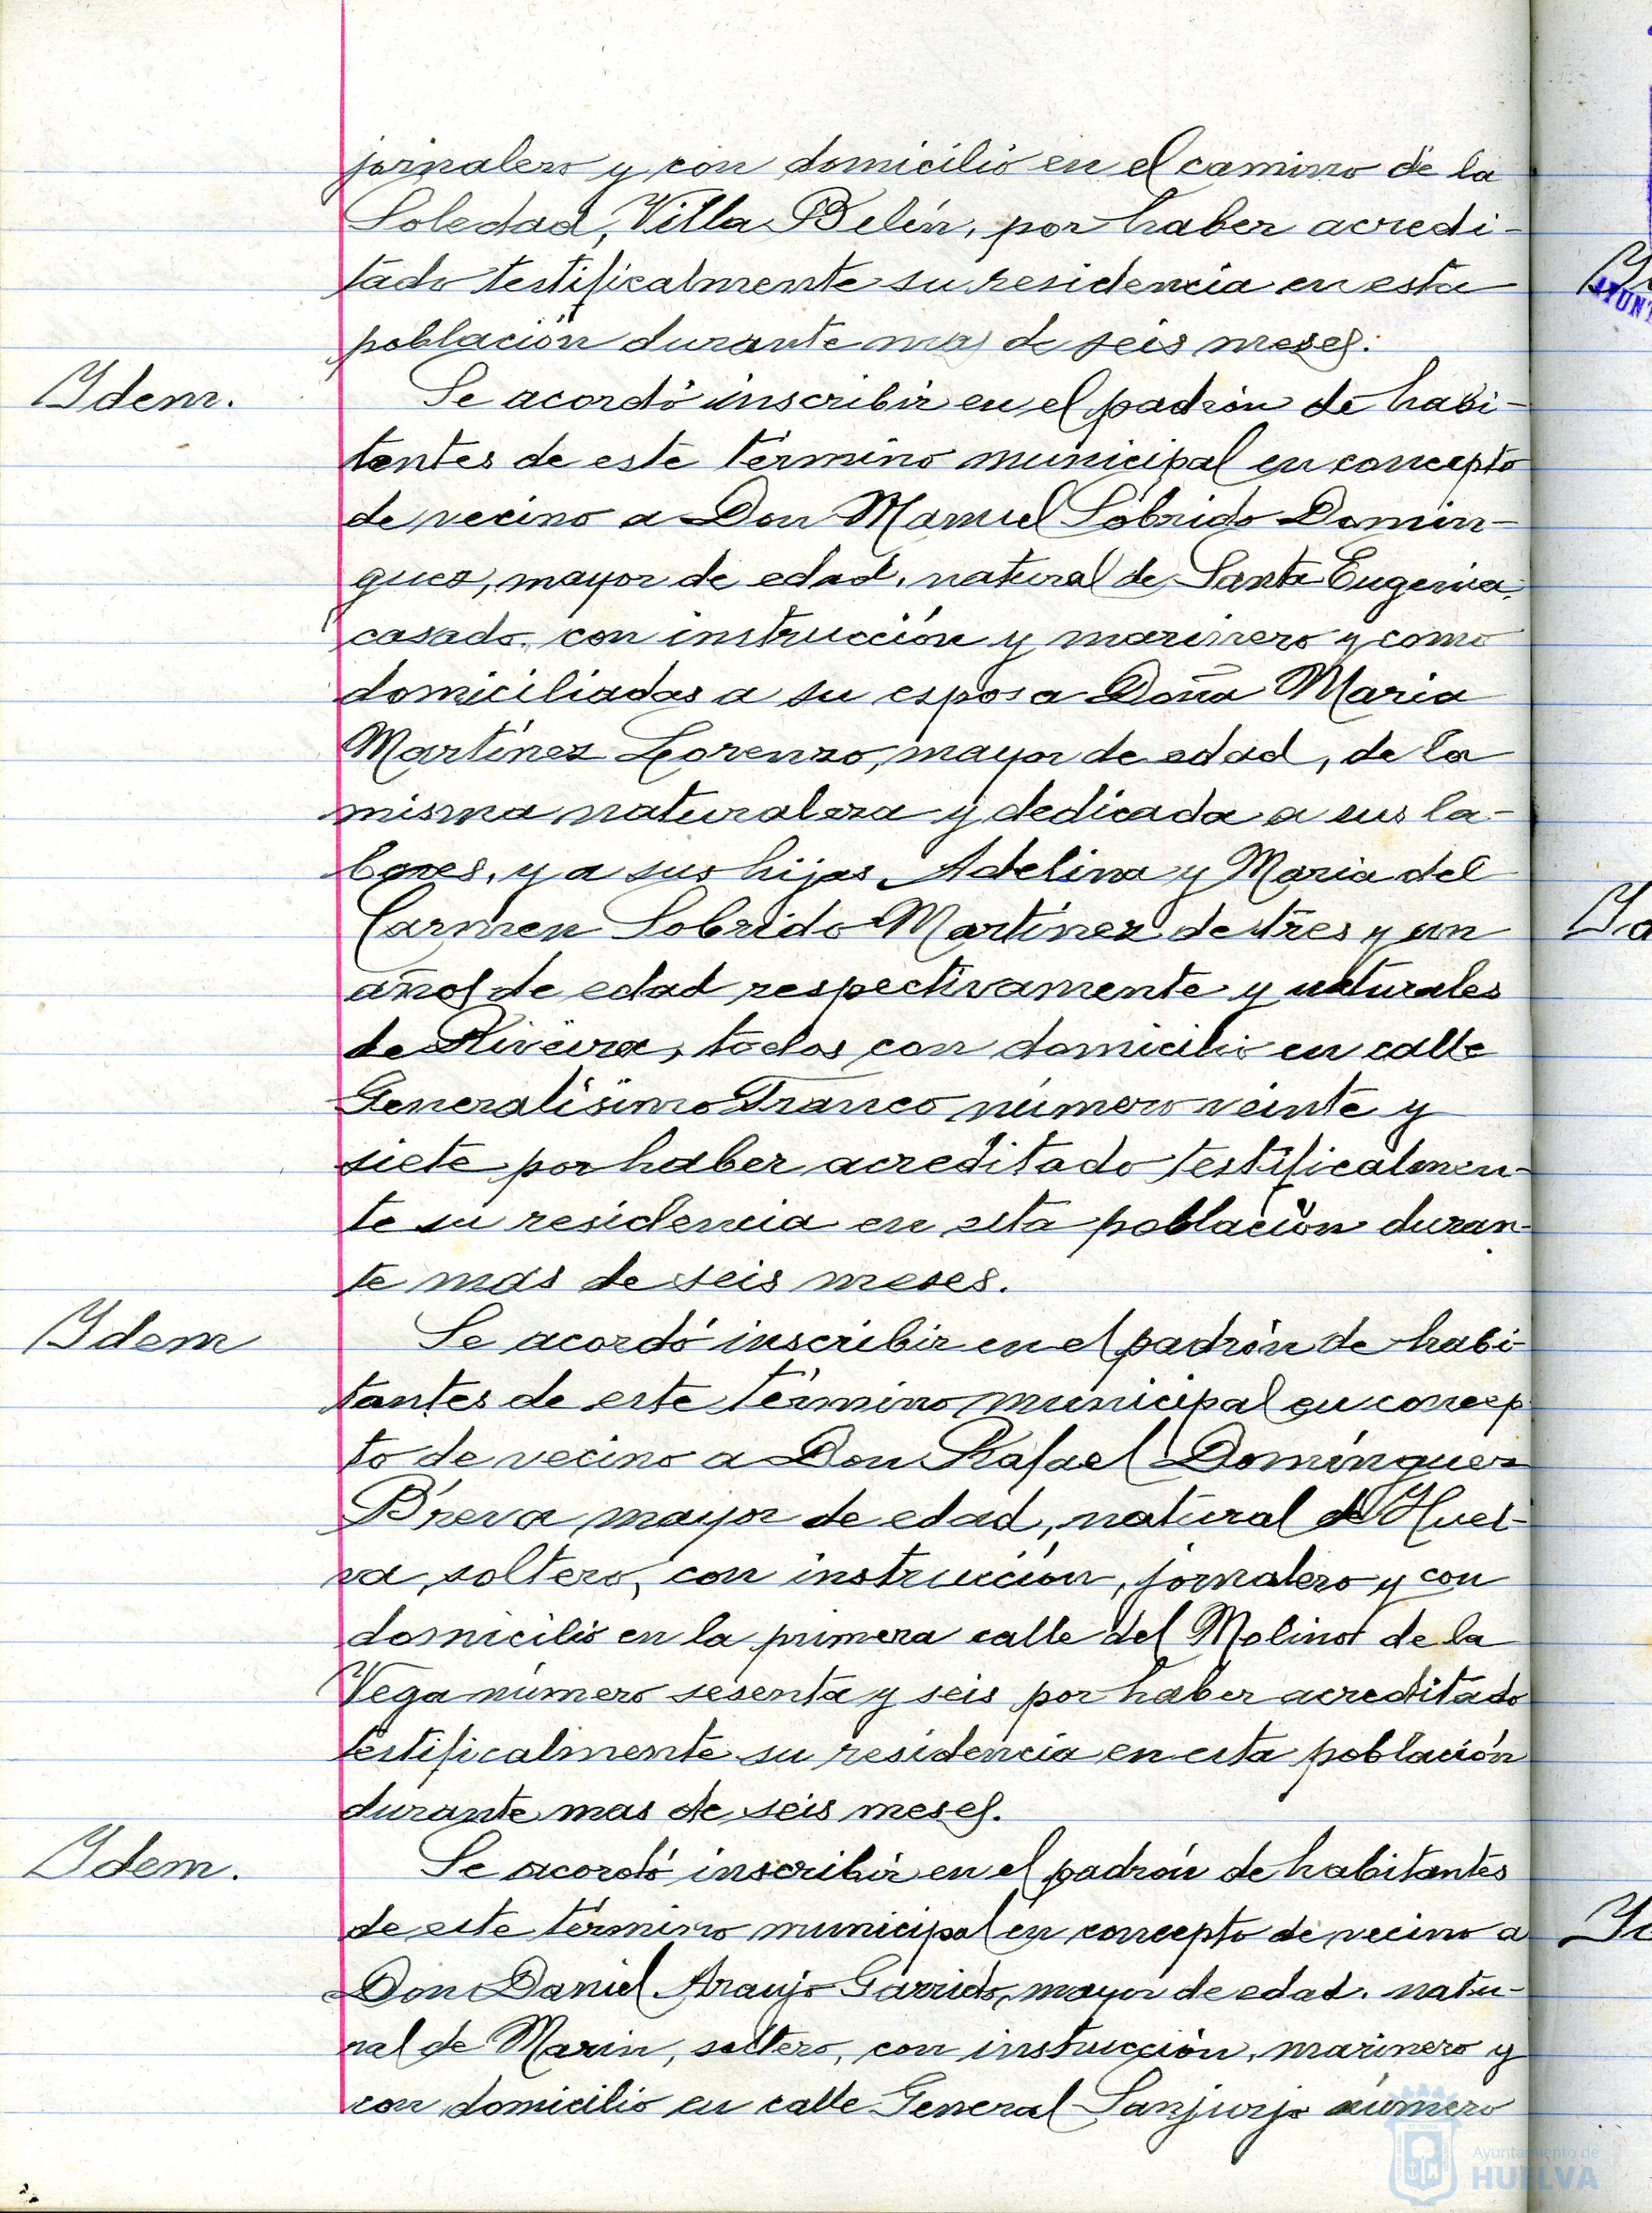 jornalero y con domicilio en el camino de la
Soledad, Villa Belén, por haber acredi-
tado testificalmente su residencia en esta
población durante mas de seis meses.
Idem.
Se acordó inscribir en el padrón de habi-
tantes de este término municipal en concepto
de vecino a Don Manuel Sobrido Domin-
guez, mayor de edad, natural de Santa Eugenia
casado, con instrucción y marinero y como
domiciliadas a su esposa Doña Maria
Martínez Lorenzo, mayor de edad, de la
misma naturaleza y dedicada a sus la-
bores, y a sus hijas Adelina y Maria del
Carmen Sobrido Martínez de tres y un
años de edad respectivamente y naturales
de Riveira, todos con domicilio en calle
Generalísimo Franco número veinte y
siete por haber acreditado testificalmen-
te su residencia en esta población duran-
te mas de seis meses.
Idem
Se acordó inscribir en el padrón de habi-
tantes de este término municipal en concep
to de vecino a Don Rafael Domínguez
Breva mayor de edad, natural de Huel-
va soltero, con instrucción, jornalero y con
domicilio en la primera calle del Molino de la
Vega número sesenta y seis por haber acreditado
testificalmente su residencia en esta población
durante mas de seis meses.
Idem.
Se acordó inscribir en el padrón de habitantes
de este término municipal en concepto de vecino a
Don Daniel Araujo Garrido, mayor de edad, natu-
ral de Marin, soltero, con instrucción, marinero y
con domicilio en calle General Sanjurjo número
Ayuntamiento de
HUELVA
AYUNT